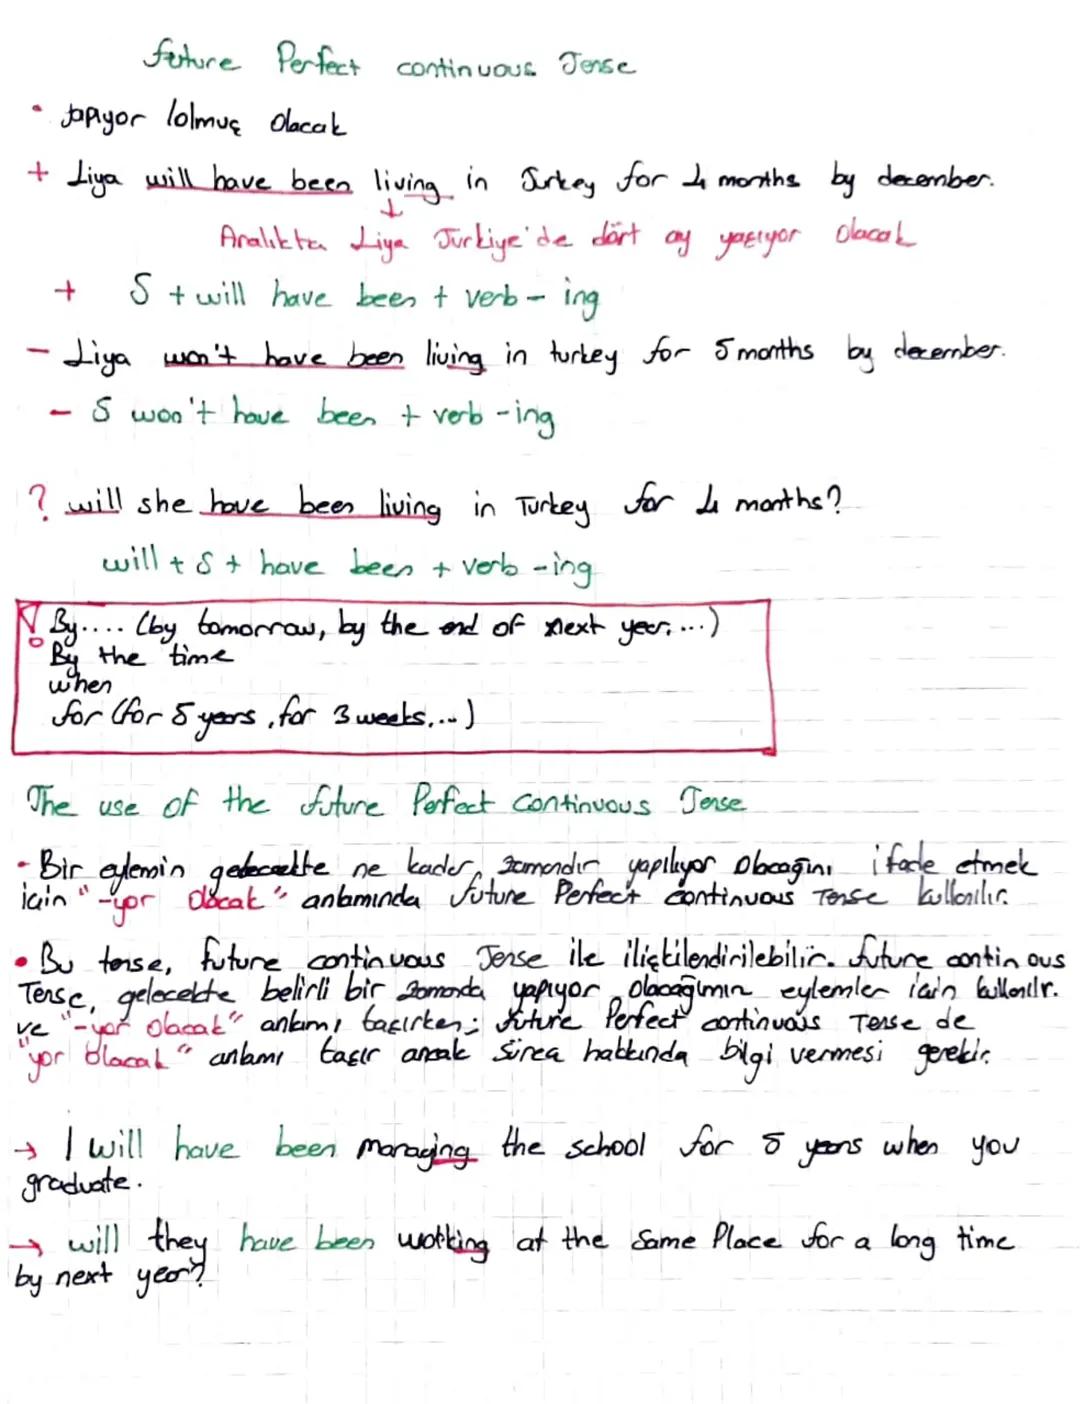 future Perfect continuous Tense
• yapıyor /olmuş olacak
+ Liya will have been living in Turkey for 4 months by december.
↓
Aralıkta Liya Türkiye'de dört ay yaşıyor olacak
+ S + will have been + verb - ing
- Liya won't have been living in turkey for 5 months by december.
- S won't have been + verb -ing
? will she have been living in Turkey for 4 months?
will + S + have been + verb -ing
! By.... (by tomorrow, by the end of next year....)
By the time
when
for (for 5 years, for 3 weeks,...)
The use of the future Perfect Continuous Tense
- Bir eylemin gelecekte ne kadar zamandır yapılıyor olacağını ifade etmek
için "-yor olacak" anlamında future Perfect continuous Tense kullanılır.
• Bu tense, future continuous Tense ile ilişkilendirilebilir. future continous
Tense, gelecekte belirli bir zamanda yapıyor olacağımın eylemler için kullanılır.
ve "-yor olacak" anlamı taşırken; future Perfect continuous Tense de
"yor olacak" anlamı taşır ancak süreç hakkında bilgi vermesi gerekir.
→ I will have been managing the school for 5 years when you
graduate.
→ will they have been working at the same Place for a long time
by next year?